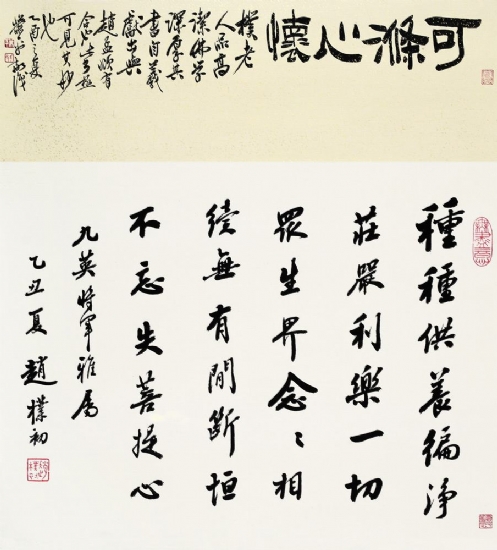 可滌心懷
樸老
人品高
潔佛學
深厚其
書自羲
獻出與
趙孟頫有
可見其妙
也
乙酉之夏
種種供養徧淨
莊嚴利樂一切
眾生界念〻相
續無有間斷恒
不忘失菩提心
九英將軍雅屬
乙丑夏 趙樸初